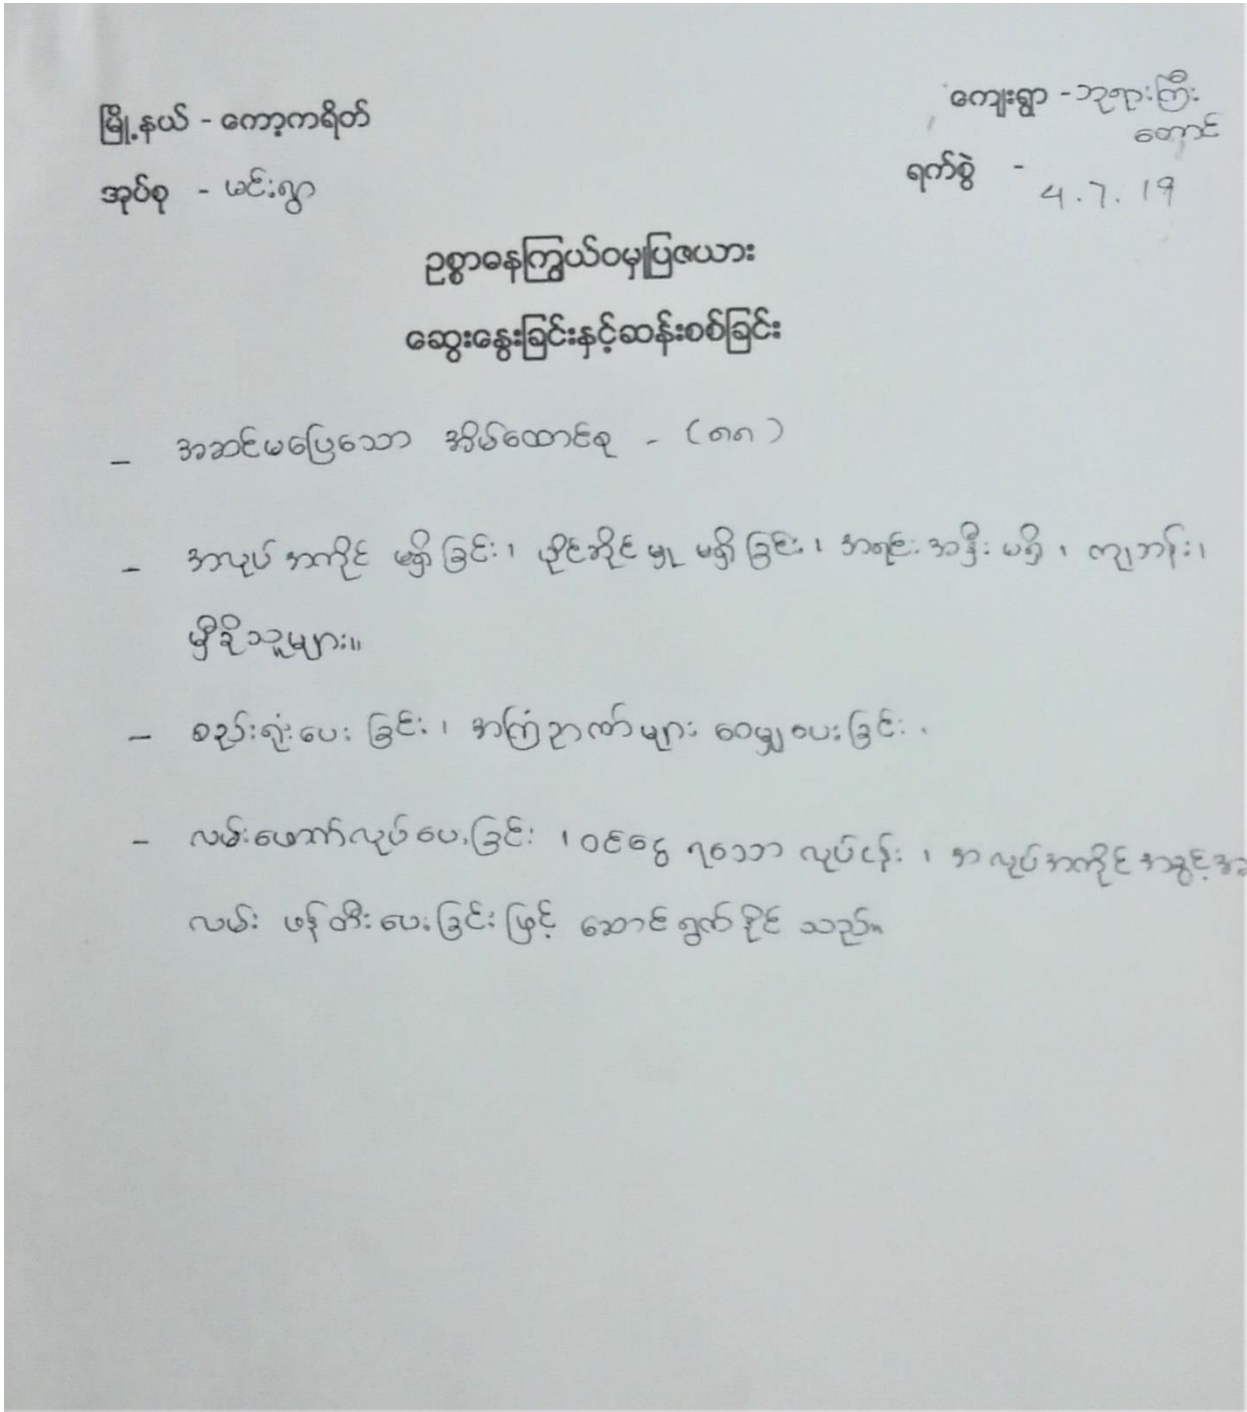 မြို့နယ် - ကော့ကရိတ်
ကျေးရွာ - ဘုရားကြီး
တောင်
အုပ်စု - မင်းရွာ
ရက်စွဲ - 4.7.19
ဥစ္စာဓနကြွယ်ဝမှုပြဇယား
ဆွေးနွေးခြင်းနှင့်ဆန်းစစ်ခြင်း
- အဆင်မပြေသော အိမ်ထောင်စု - (၈၈)
- အလုပ်အကိုင် မရှိခြင်း၊ ပိုင်ဆိုင်မှု မရှိခြင်း၊ အရင်းအနှီးမရှိ၊ ကျဘန်း၊
မှီခိုသူများ။
- စည်းရုံးပေးခြင်း၊ အကြံဉာဏ်များ ဝေမျှပေးခြင်း၊
- လမ်းဖောက်လုပ်ပေးခြင်း၊ ဝင်ငွေရသော လုပ်ငန်း၊ အလုပ်အကိုင်အခွင့်အ
လမ်း ဖန်တီးပေးခြင်းဖြင့် ဆောင်ရွက်နိုင်သည်။